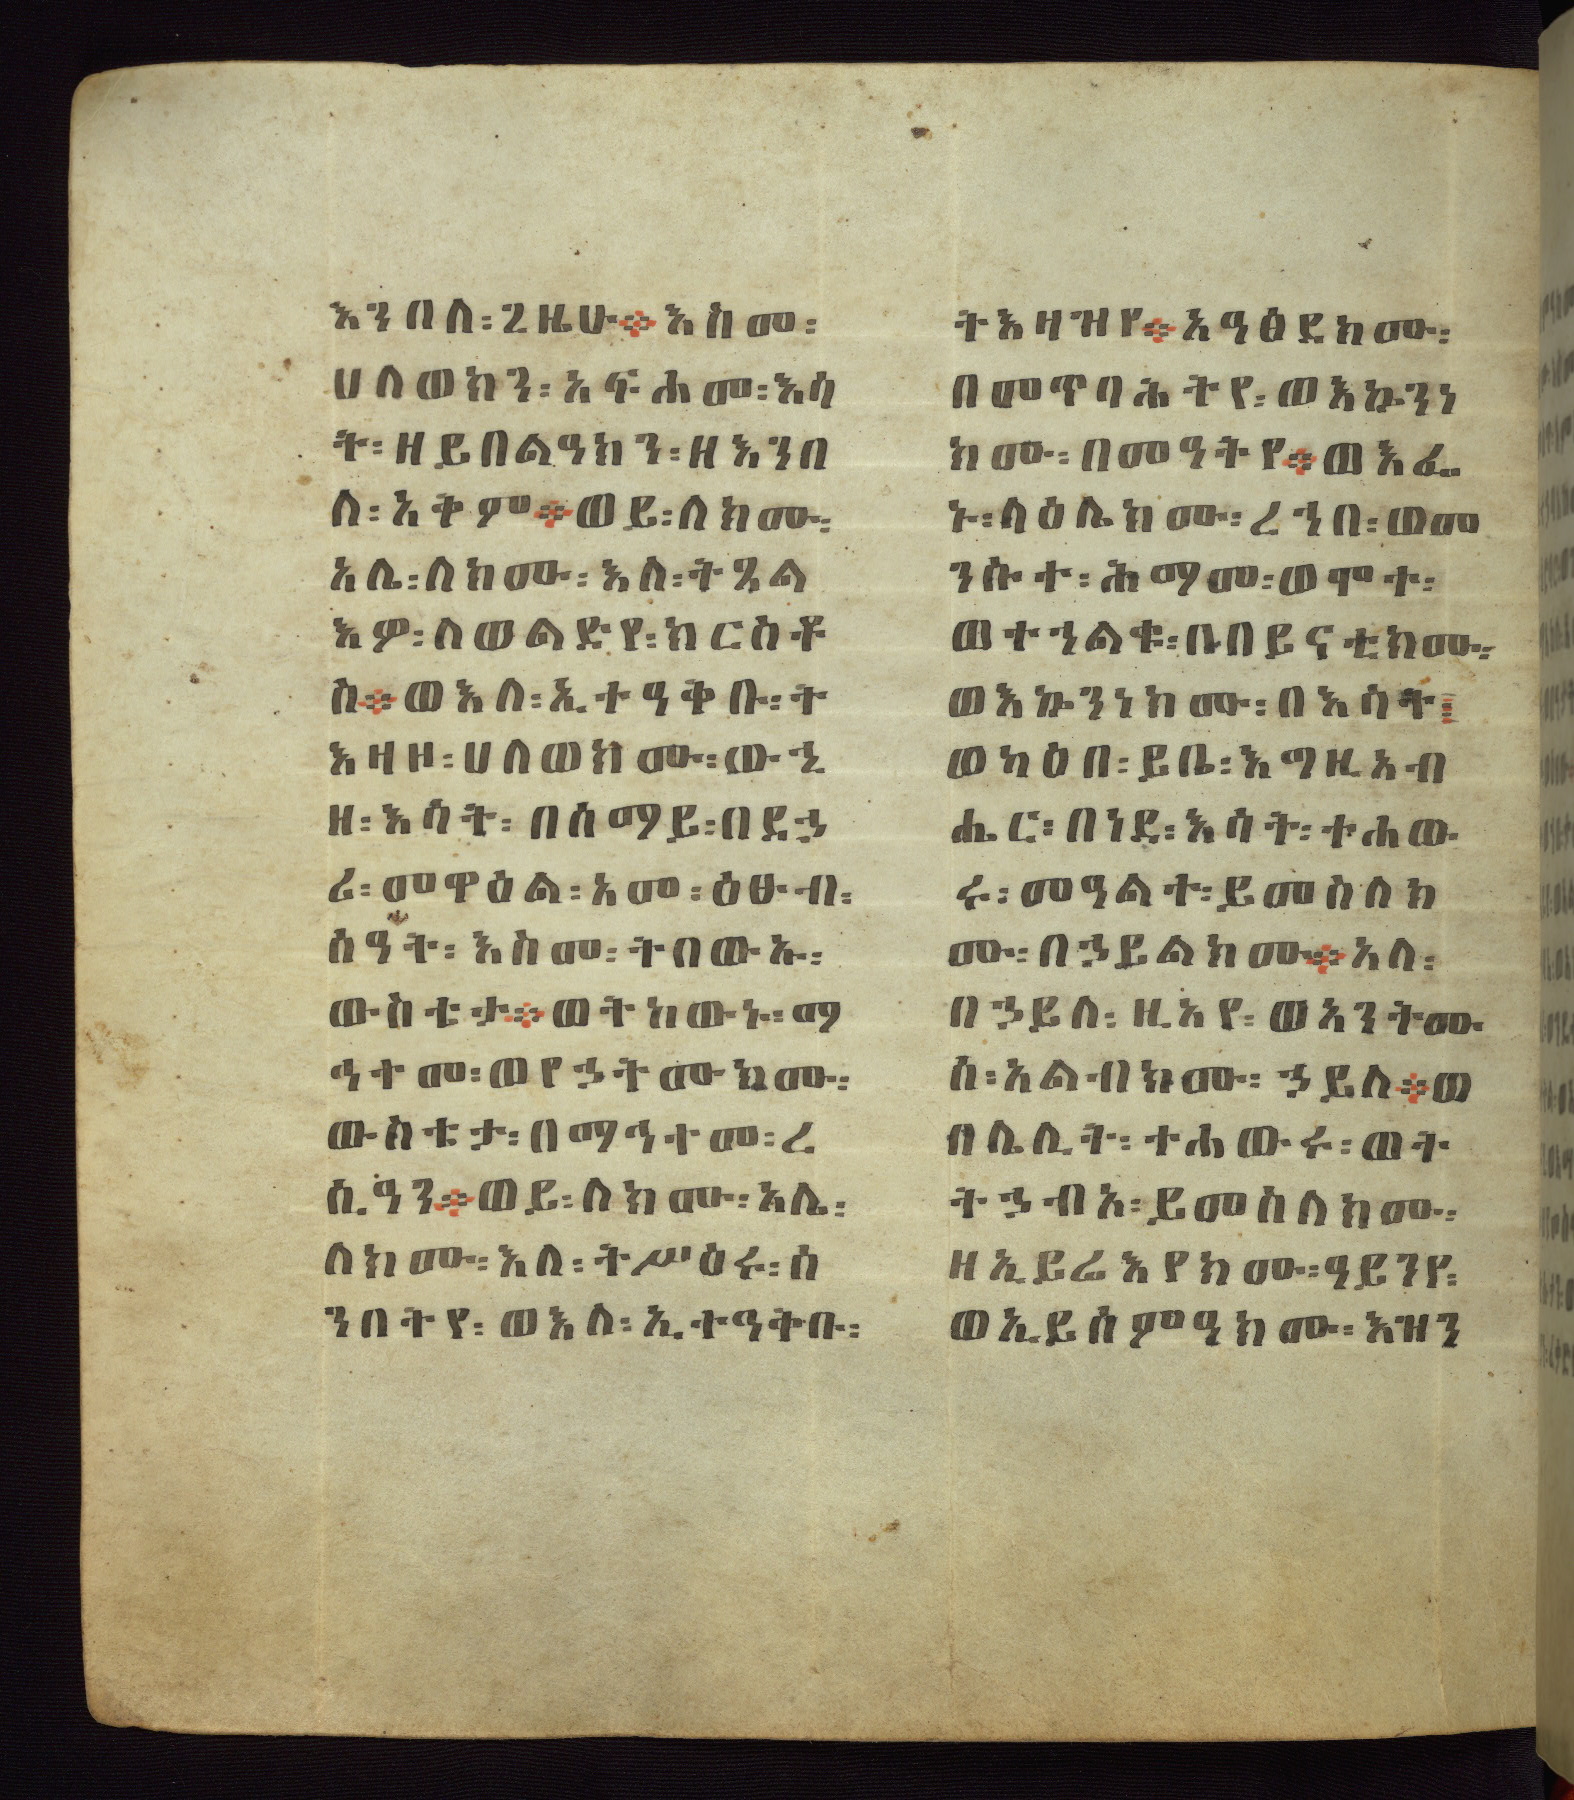 እንበለ፡ጊዜሁ፨እስመ፡
ሀለወክን፡አፍሐመ፡እሳ
ት፡ዘይበልዓክን፡ዘእንበ
ለ፡አቅም፨ወይ፡ለክሙ፡
አሌ፡ለክሙ፡እለ፡ትዔል
እዎ፡ለወልድየ፡ክርስቶ
ስ፨ወእለ፡ኢተዓቅቡ፡ት
እዛዞ፡ሀለወክሙ፡ውኂ
ዘ፡እሳት፡በሰማይ፡በደኃ
ሪ፡መዋዕል፡አመ፡ዕፁብ፡
ሰዓት፡እስመ፡ትበውኡ፡
ውስቴታ፨ወትከውኑ፡ማ
ኅተመ፡ወየኃትሙክሙ፡
ውስቴታ፡በማኅተመ፡ረ
ሲዓን፨ወይ፡ለክሙ፡አሌ፡
ለክሙ፡እለ፡ትሥዕሩ፡ሰ
ንበትየ፡ወእለ፡ኢተዓትቡ፡
ትእዛዝየ፨አዓፅደክሙ፡
በመጥባሕትየ፡ወእኴንነ
ክሙ፡በመዓትየ፨ወእፌ
ኑ፡ላዕሌክሙ፡ረኀበ፡ወመ
ንሱተ፡ሕማመ፡ወሞተ፡
ወተኀልቁ፡በበይናቲክሙ፡
ወእኴንነክሙ፡በእሳት፡
ወካዕበ፡ይቤ፡እግዚአብ
ሔር፡በነደ፡እሳት፡ተሐው
ሩ፡መዓልተ፡ይመስለክ
ሙ፡በኃይልክሙ፨አለ፡
በኃይለ፡ዚአየ፡ወአንትሙ
ሰ፡አልብክሙ፡ኃይለ፨ወ
በሌሊት፡ተሐውሩ፡ወት
ትኃብአ፡ይመስለክሙ፡
ዘኢይሬእየክሙ፡ዓይንየ፡
ወኢይሰምዓክሙ፡እዝን